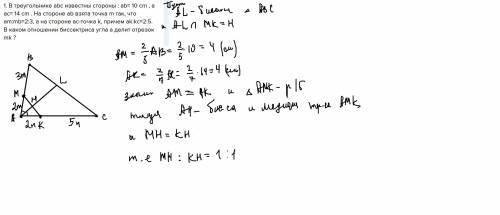 1. В треугольнике abc известны стороны : ab= 10 cm , а
ac= 14 cm . На стороне ab взята точка m так, что
am:mb=2:3, а на стороне ac-точка k, причем ak:kc=2:5.
В каком отношении биссектриса угла a делит отрезок
mk ?
AL - бисси ABC
AL ∩ MK = H
AM = 2/5 AB = 2/5 · 10 = 4 (см)
AK = 2/7 AC = 2/7 · 14 = 4 (см)
значит AM = AK и △ AMK - р/б
тогда AH - бисса и медиана тр-ка AMK,
и MH = KH
т.е MH : KH = 1 : 1
B
3m
L
M
H
2m
A
2n
K
5n
C